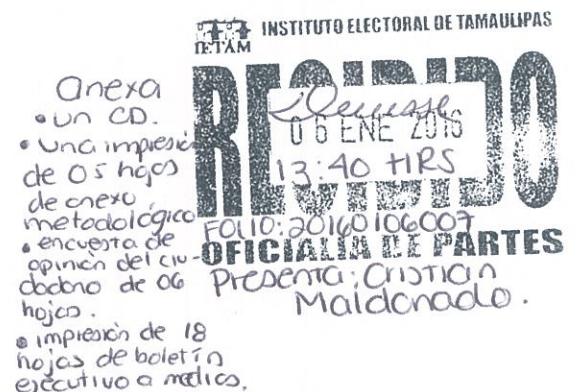 IETAM
INSTITUTO ELECTORAL DE TAMAULIPAS
RECIBIDO
Denisse
06 ENE 2016
13:40 HRS
FOLIO: 20160106007
OFICIALIA DE PARTES
Presenta: Cristian
Maldonado.
anexa
• un CD.
• una impresión
de 05 hojas
de anexo
metodológico
• encuesta de
opinión del ciu-
dadano de 06
hojas.
• impresión de 18
hojas de boletín
ejecutivo a medios.